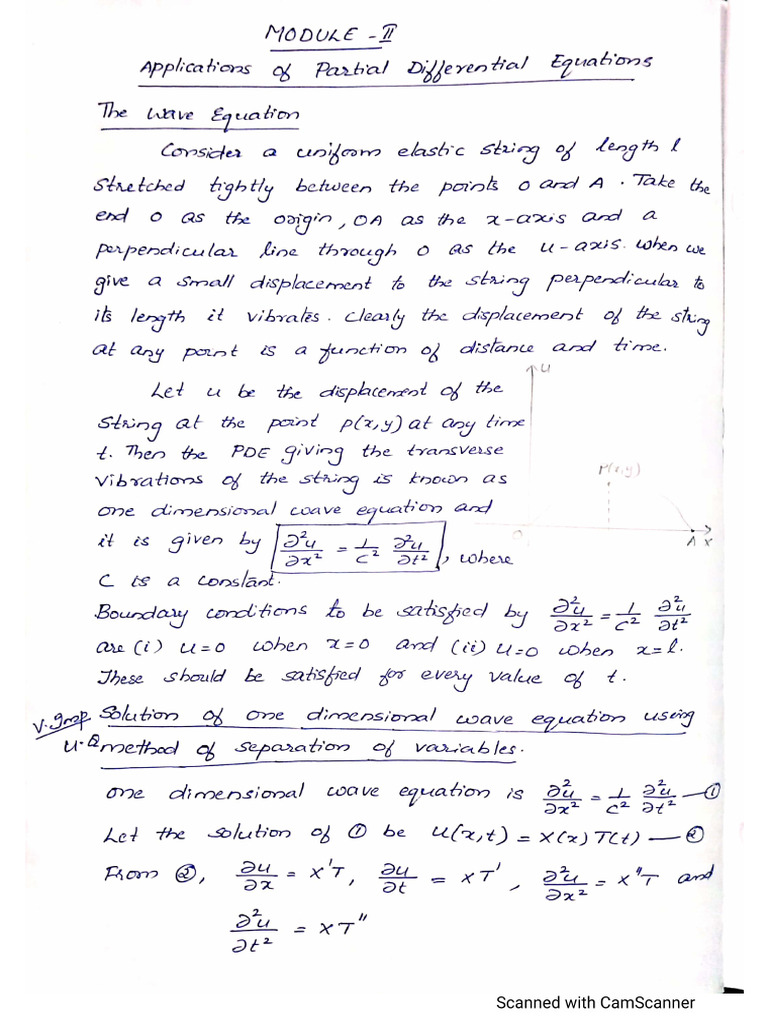 MODULE - II
Applications of Partial Differential Equations
The Wave Equation
Consider a uniform elastic string of length l
stretched tightly between the points O and A. Take the
end O as the origin, OA as the x-axis and a
perpendicular line through O as the u-axis. When we
give a small displacement to the string perpendicular to
its length it vibrates. Clearly the displacement of the string
at any point is a function of distance and time.
Let u be the displacement of the
string at the point P(x,y) at any time
t. Then the PDE giving the transverse
vibrations of the string is known as
one dimensional wave equation and
it is given by ∂²u/∂x² = 1/c² ∂²u/∂t², where
C is a constant.
u
P(x,y)
O
A x
Boundary conditions to be satisfied by ∂²u/∂x² = 1/c² ∂²u/∂t²
are (i) u=0 when x=0 and (ii) u=0 when x=l.
These should be satisfied for every value of t.
V. Imp Solution of one dimensional wave equation using
U.Q method of separation of variables.
One dimensional wave equation is ∂²u/∂x² = 1/c² ∂²u/∂t² — ①
Let the solution of ① be u(x,t) = X(x) T(t) — ②
From ②, ∂u/∂x = X'T, ∂u/∂t = XT', ∂²u/∂x² = X"T and
∂²u/∂t² = XT"
Scanned with CamScanner